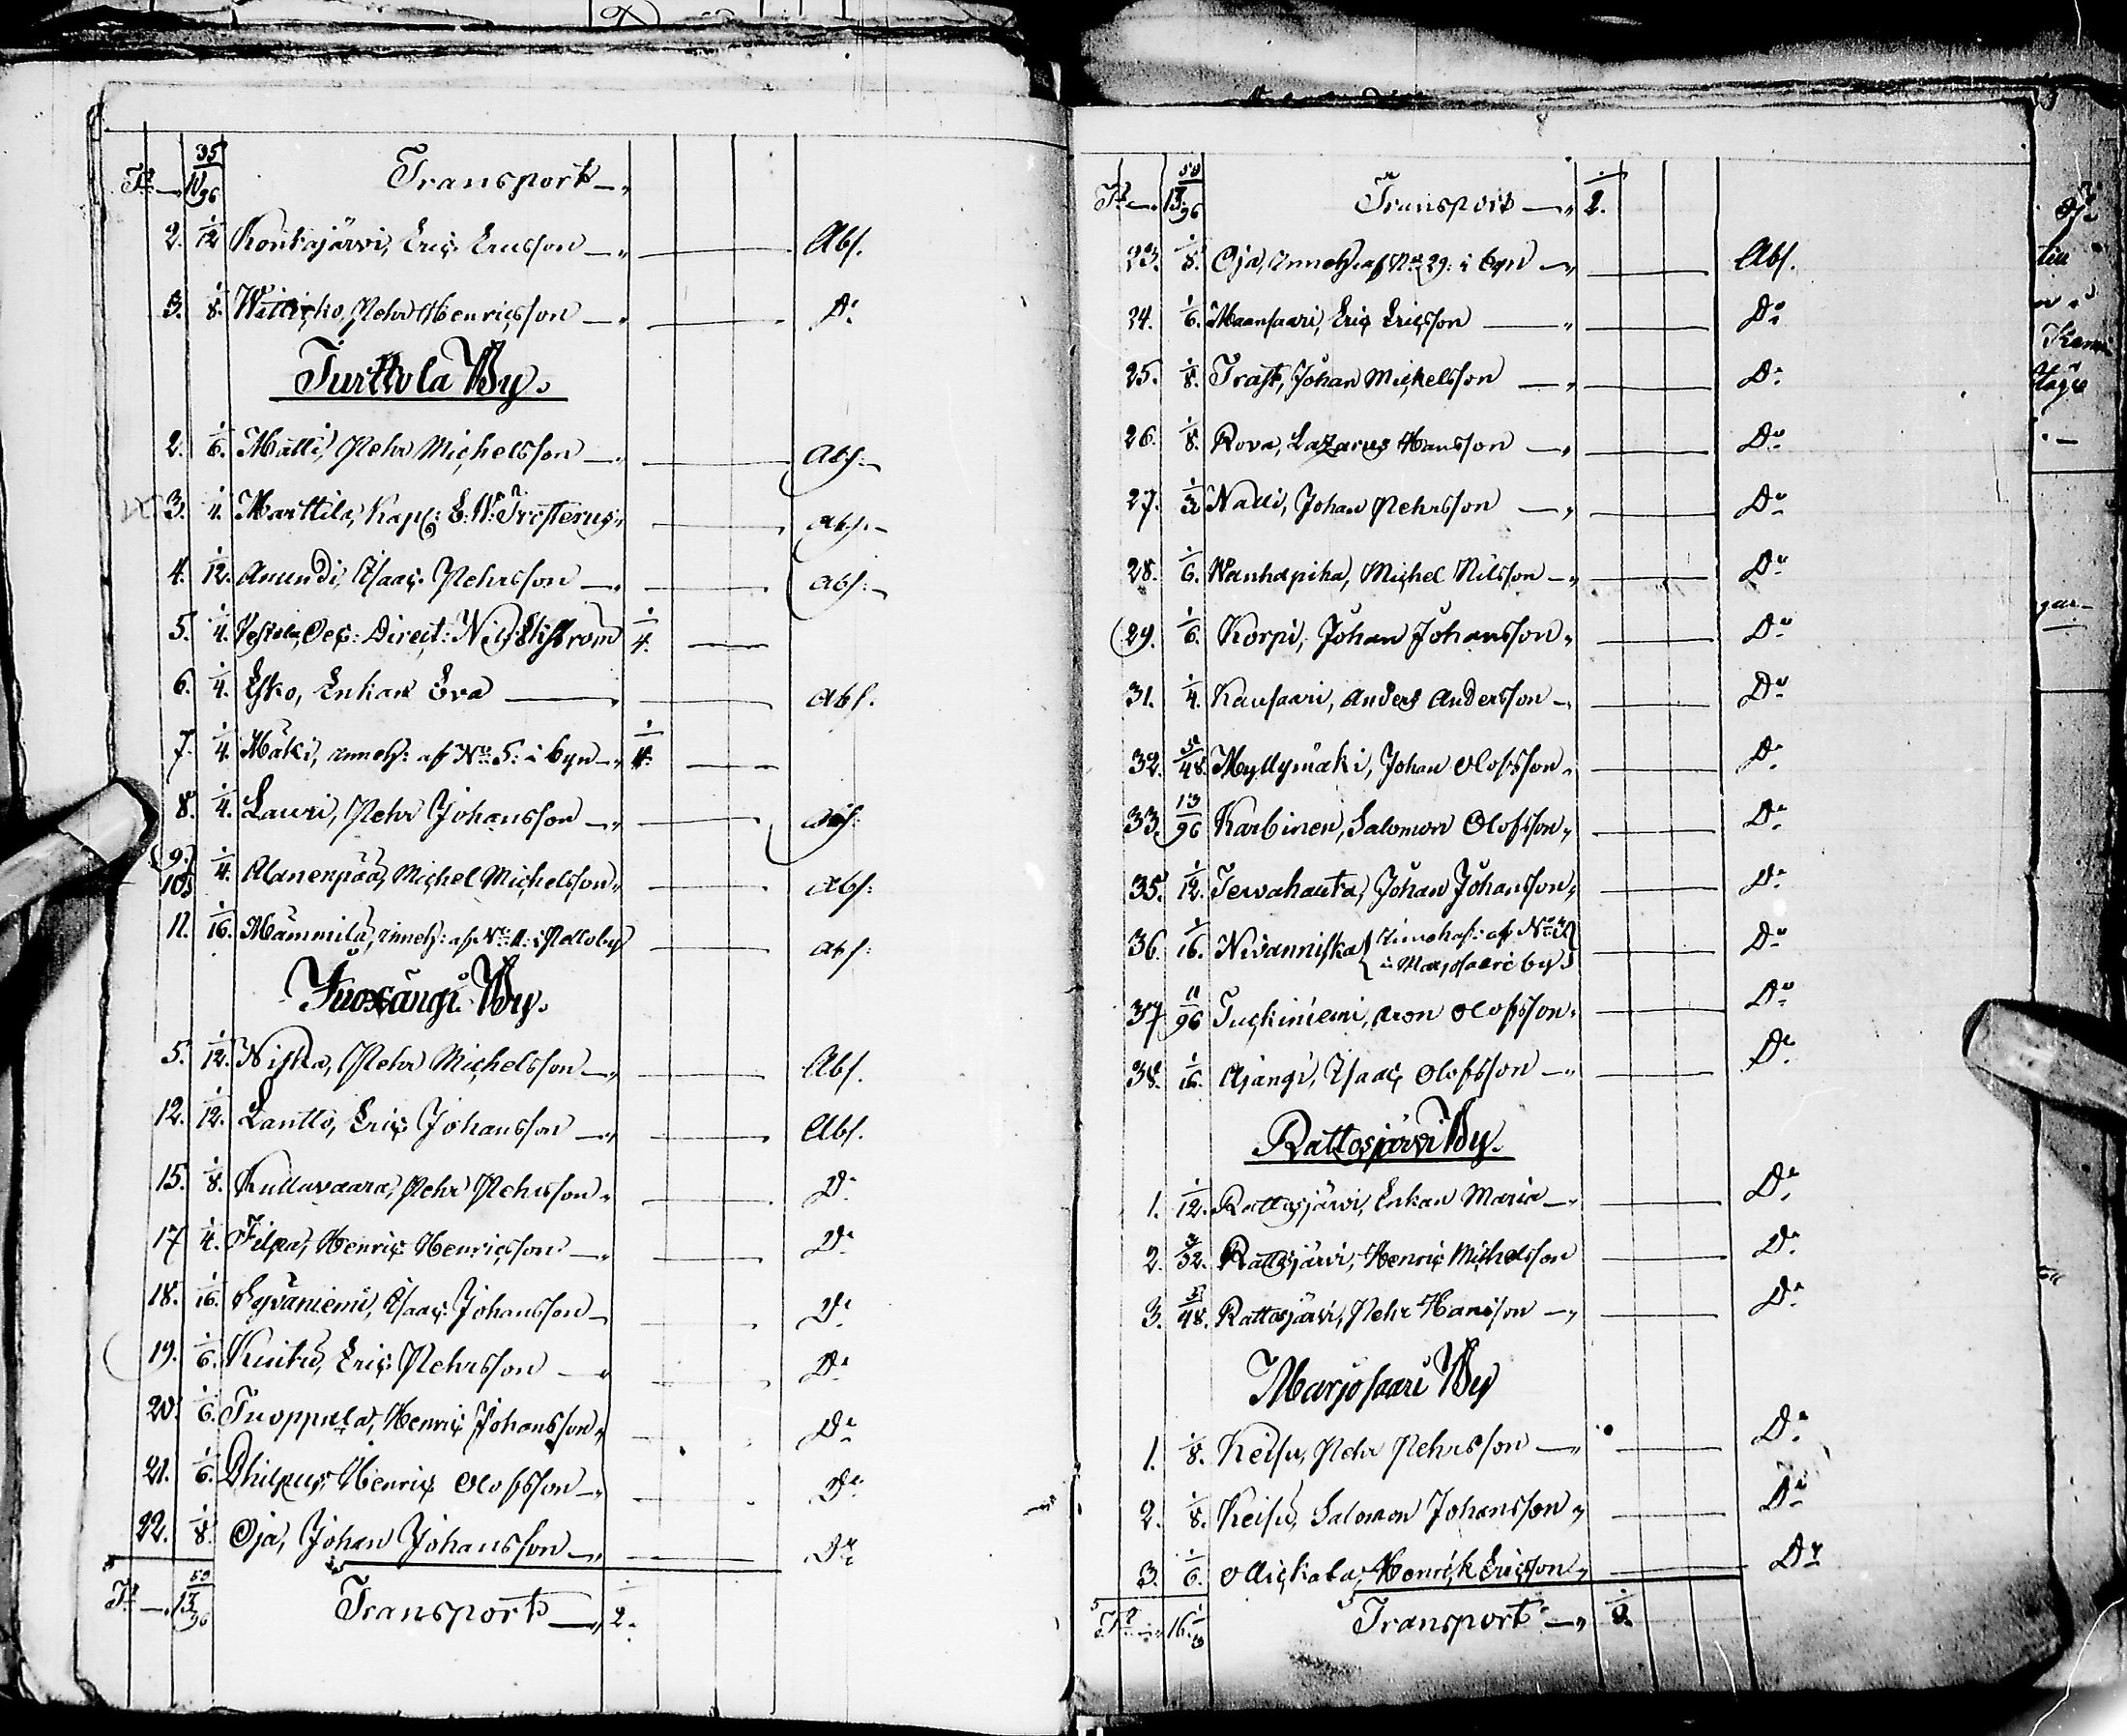 Transport
2. 1/12 Konkajärvi, Eric Ericsson — Abs.
3. 1/8. Pehr Henricsson — Do
Turttola By.
2. 1/6. Matti, Pehr Michelsson — Abs.
3. 1/4. Marttila, Kapl: E. W. Frosterus Abs.
4. 1/12. Anundi, Isaac Pehrsson — Abs.
5. 1/4. Oec: Direct: Nils Ekström 1/4.
6. 1/4. Esko, Enkan Eva — Abs.
7. 1/4. Mäki, inneh: af No 5: i byn — 1/4.
8. 1/4. Lauri, Pehr Johansson — Abs.
9. 10. 1/4. Alanenpää, Michel Michelsson Abs.
11. 1/16. Mämmilä, inneh: af No 11: i Pelloby Abs.
Juoxängi By.
5. 1/12. Niska, Pehr Michelsson — Abs.
12. 1/12. Lantto, Eric Johansson — Abs.
15. 1/8. Kullavaara, Pehr Pehrsson Do
17 1/4. Filpa, Henric Henricsson — Do
18. 1/16. Syväniemi, Isaac Johansson — Do
19. 1/6. Kuitu, Eric Pehrsson — Do
20. 1/6. Tuoppula, Henric Johansson Do
21. 1/6. Philpus, Henric Olofsson — Do
22. 1/8. Oja, Johan Johansson — Do
Transport — 1/2.
Transport — 1/2.
23. 1/8. Oja, inneh. af No 29: i byn — Abs.
24. 1/6. Maansaari, Eric Ericsson — Do
25. 1/8. Trast, Johan Mickelsson — Do
26. 1/8. Rova, Lazarus Hansson — Do
27. 1/3 Nalli, Johan Pehrsson — Do
28. 1/6. Wanhapiha, Michel Nilsson — Do
29. 1/6. Korpi, Johan Johansson Do
31. 1/4. Kansaari, Anders Andersson — Do
32. 5/48. Myllymäki, Johan Olofsson Do
33. 13/96 Karbinen, Salomon Olofsson Do
35. 1/12. Tervahauta, Johan Johansson Do
36. 1/16. Nivanniska { Innehaf: af No 3 i Marjosaari by } Do
37 11/96 Tuckiniemi, Aron Olofsson Do
38. 1/16. Ajangi, Isaac Olofsson — Do
Rattosjärvi By.
1. 1/12. Rattosjärvi, Enkan Maria — Do
2. 3/32. Rattosjärvi, Henric Michelsson Do
3. 5/48. Rattosjärvi, Pehr Hansson — Do
Marjosaari By
1. 1/8. Keisu, Pehr Pehrsson — Do
2. 1/8. Keisu, Salomon Johansson Do
3. 1/6. Ollickala, Henrik Ericsson Do
Transport —